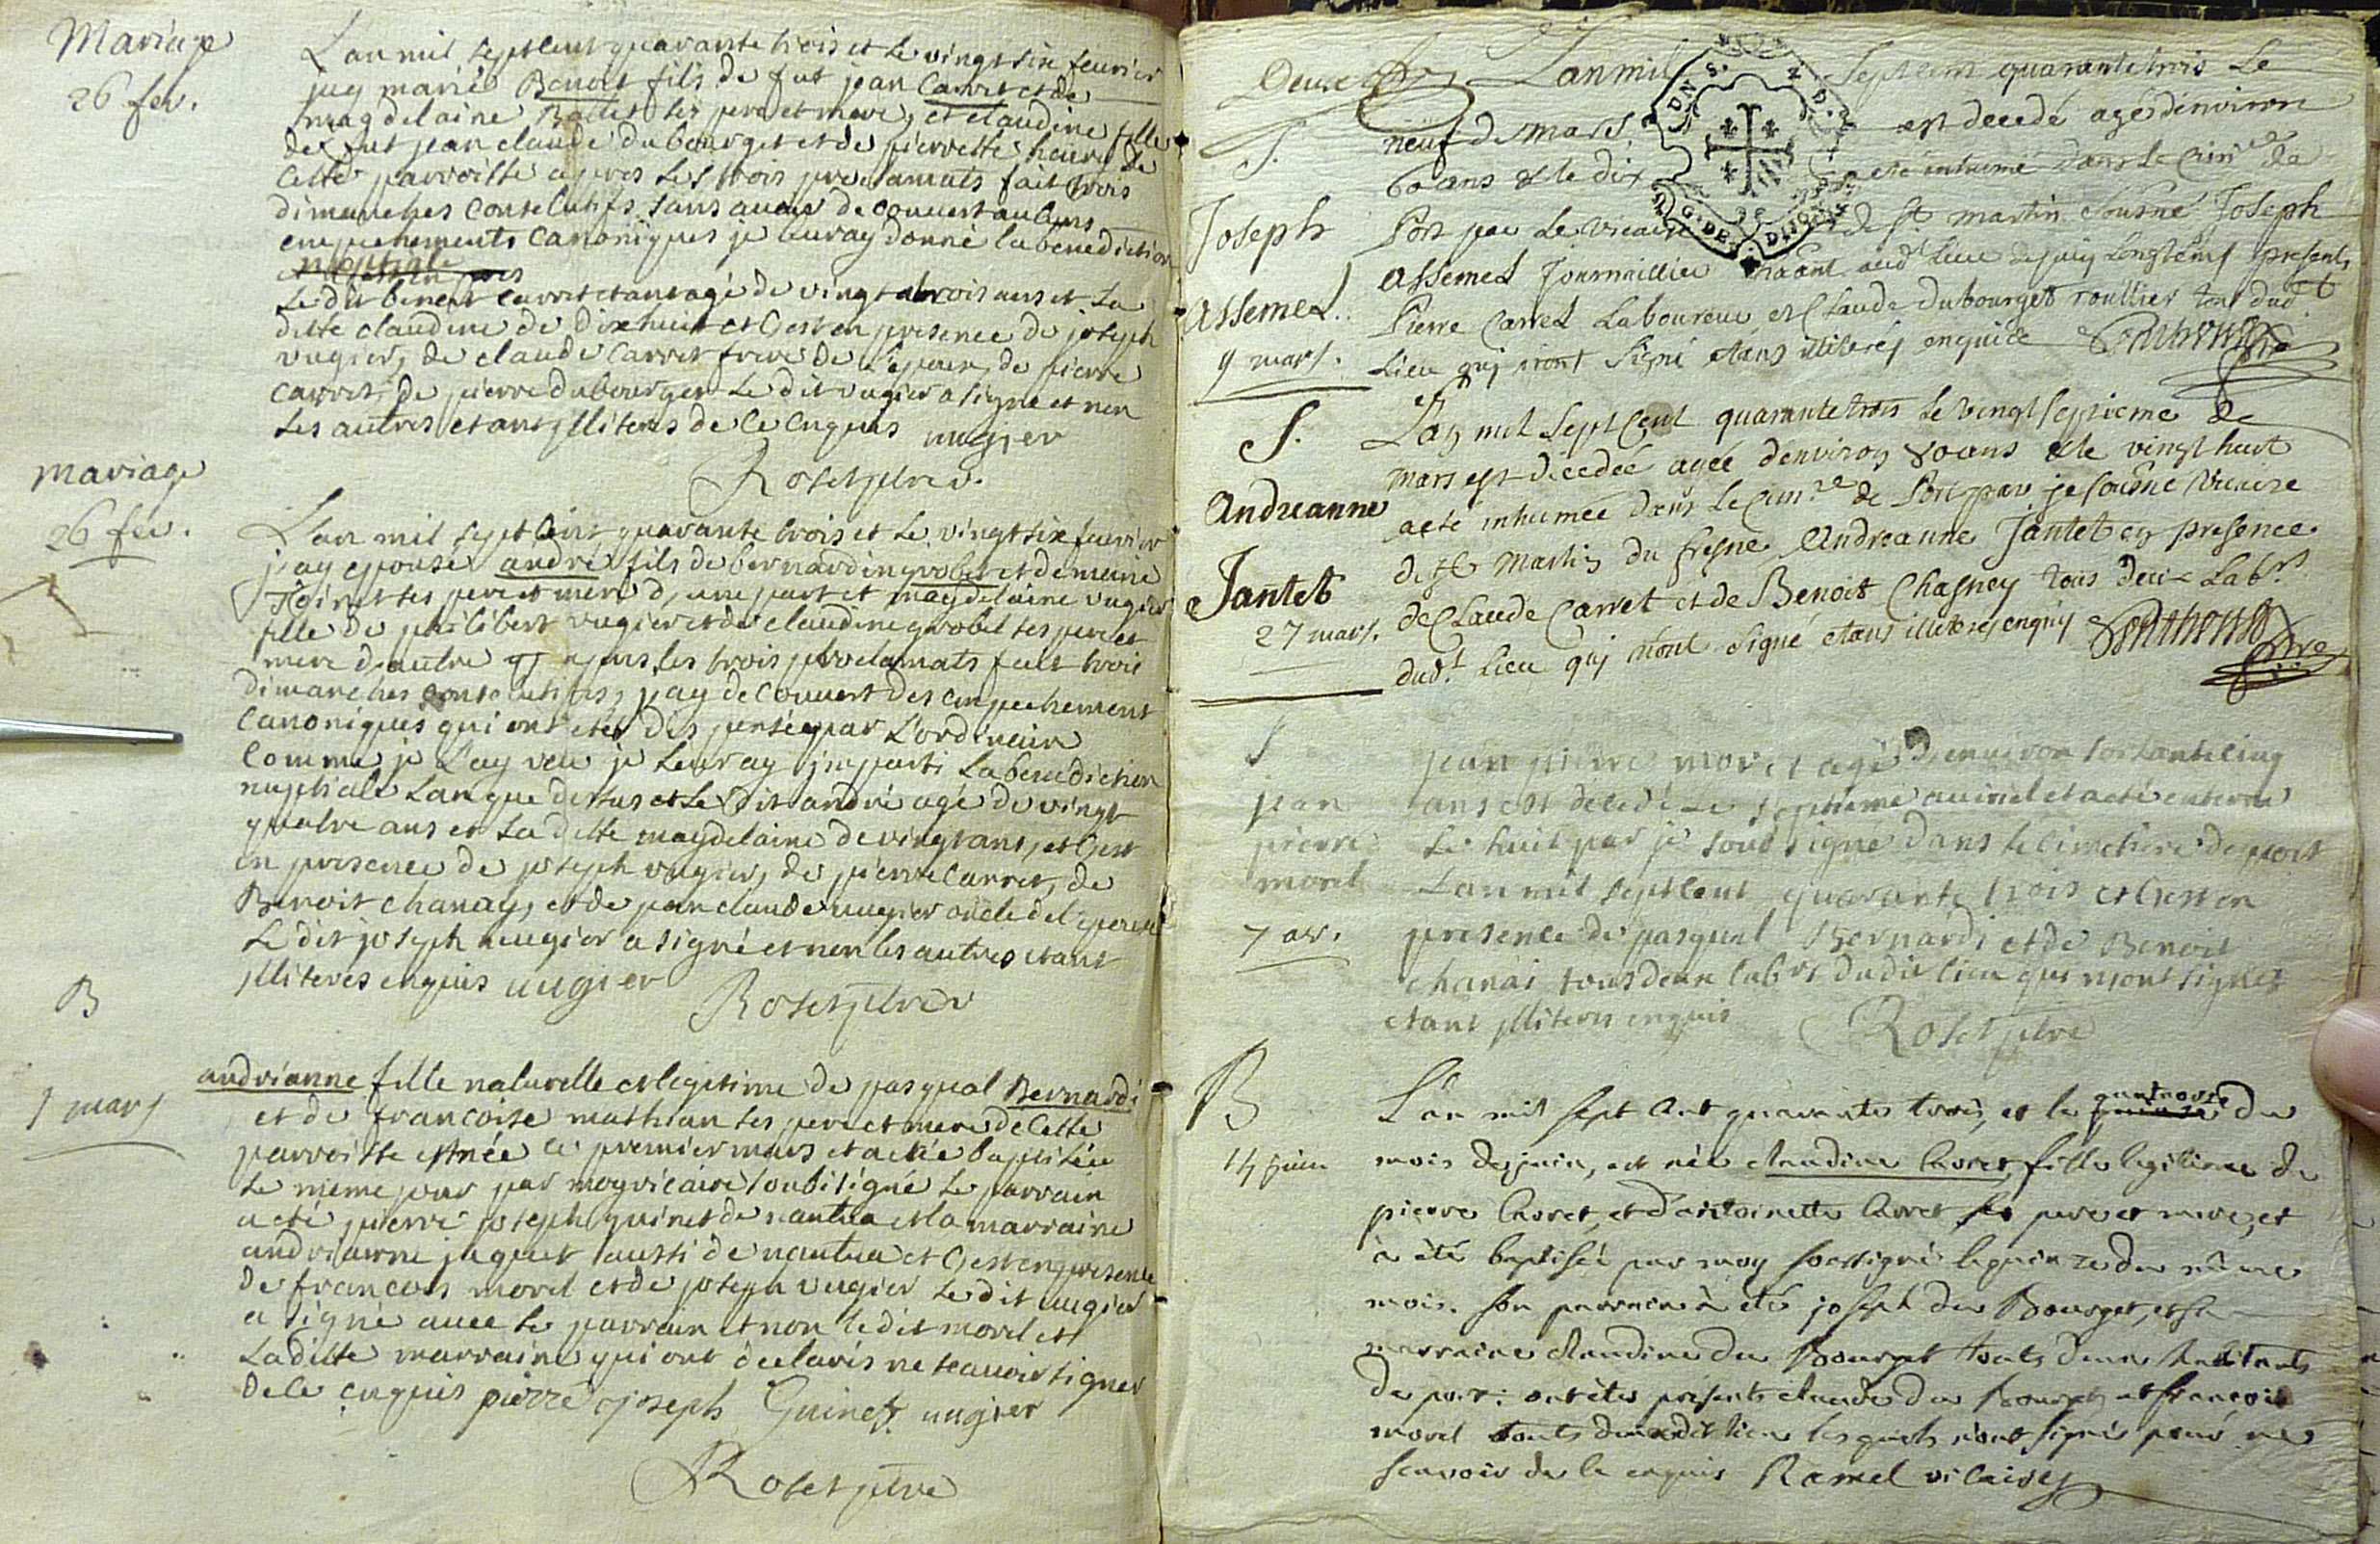 Mariage
26 fev.
L'an mil sept cent quarante trois et le vingt six feuvrier
j'ay marié Benoit fils de fut jean Carret et de
magdelaine Ballet ses pere et mere, et claudine fille
de fut jean claude du bourget et de pierrette de
cette parroisse apres les trois proclamats fait trois
dimanches consecutifs sans avoir decouvert aucuns
empechements canoniques je leuray donné la benediction
nuptiale
le dit benoit carret etant agé de vingt trois ans et la
ditte claudine de dixhuit et c'est en presence de joseph
vugier, de claude carret frere de l'epoux, de pierre
carret, de pierre dubourget le dit vugier a signé et non
les autres etant jlliteres de ce enquis uugier
Roset ptre v.
mariage
26 fev.
L'an mil sept cent quarante trois et le vingt six feuvrier
j'ay epousé andré fils de bernardin grobet et de marie
ses pere et mere d'une part et magdelaine vugier
fille de philibert vugier et de claudine grobel ses pere et
mere d'autre apres les trois proclamats fait trois
dimanches consecutifs, j'ay decouvert des empechement
canoniques qui ont etés dispensés par l'ordinaire
comme je l'ay veu je leuray jmparti la benediction
nuptiale l'an que dessus et le dit andré agé de vingt
quatre ans et la ditte magdelaine de vingt ans, et c'est
en presence de joseph vugier, de pierre carret, de
Benoit chanay, et de jean claude uugier oncle de l'epouse
le dit joseph uugier a signé et non les autres etant
jlliteres enquis uugier
Roset ptre v
B
1 mars
andrianne fille naturelle et legitime de pasqual Bernardi
et de francoise mathian ses pere et mere de cette
parroisse est née le premier mars et a eté baptisée
le meme jour par moy vicaire soubsigné le parrain
a eté pierre joseph guinet de nantua et la marraine
andrianne jaquet aussi de nantua et c'est en presence
de francois morel et de joseph vugier le dit uugier
a signé avec le parrain et non le dit morel et
la ditte marraine qui ont declarés ne scauoir signer
de ce enquis pierre joseph Guinet uugier
Roset ptre
Deux L'an mil Sept cent quarante trois Le
S. neuf de mars est decedé agé d'environ
60 ans & le dix a eté inhumé dans le cim.re de
Joseph Port par Le vicaire de St martin Sousné Joseph
Assemet Journaillier aud. lieu depuis longtems presents
Assemet. Pierre Carret Laboureur et Claude Dubourget roullier tous dud.t
9 mars. Lieu quj n'ont signé etans illiterés enquis
S. L'an mil Sept Cent quarante trois le vingt septieme de
mars est décedée agée d'environ 80 ans & le vingt huit
Andreanne a eté inhumée dans le cim.re de Port par je sousné Vicaire
de St Martin du fresne Andreanne Jantet en presence
Jantet de Claude Carret et de Benoit Chasney tous deux Lab.rs
27 mars. dud.t lieu quj n'ont signé etans illiterés enquis
S
jean pierre morel
7 avr.
jean pierre morel agé d'environ soixante cinq
ans est decedé le septieme auiril et a eté enterré
le huit par je sousigné dans le cimetiere de port
L'an mil sept cent quarante trois et c'est en
presence de pasqual Bernardi et de Benoit
chanai tous deux lab.rs du dit lieu qui n'ont signés
etant jlliteres enquis Roset ptre
B
14 juin
L'an mil sept cent quarante trois, et le quatorze du
mois de juin, est née claudine Carret, fille legitime de
pierre Carret, et d'antoinette Carret ses pere et mere, et
à été baptisée par moy soussigné le quinze du même
mois. son parrain à été joseph du Bourget, et sa
marraine claudine du Bourget touts deux habitants
de port: ont étés présents claude du Bourget et françois
morel touts deux dudit lieu lesquels n'ont signés pour ne
scavoir de ce enquis Ramel vicaire